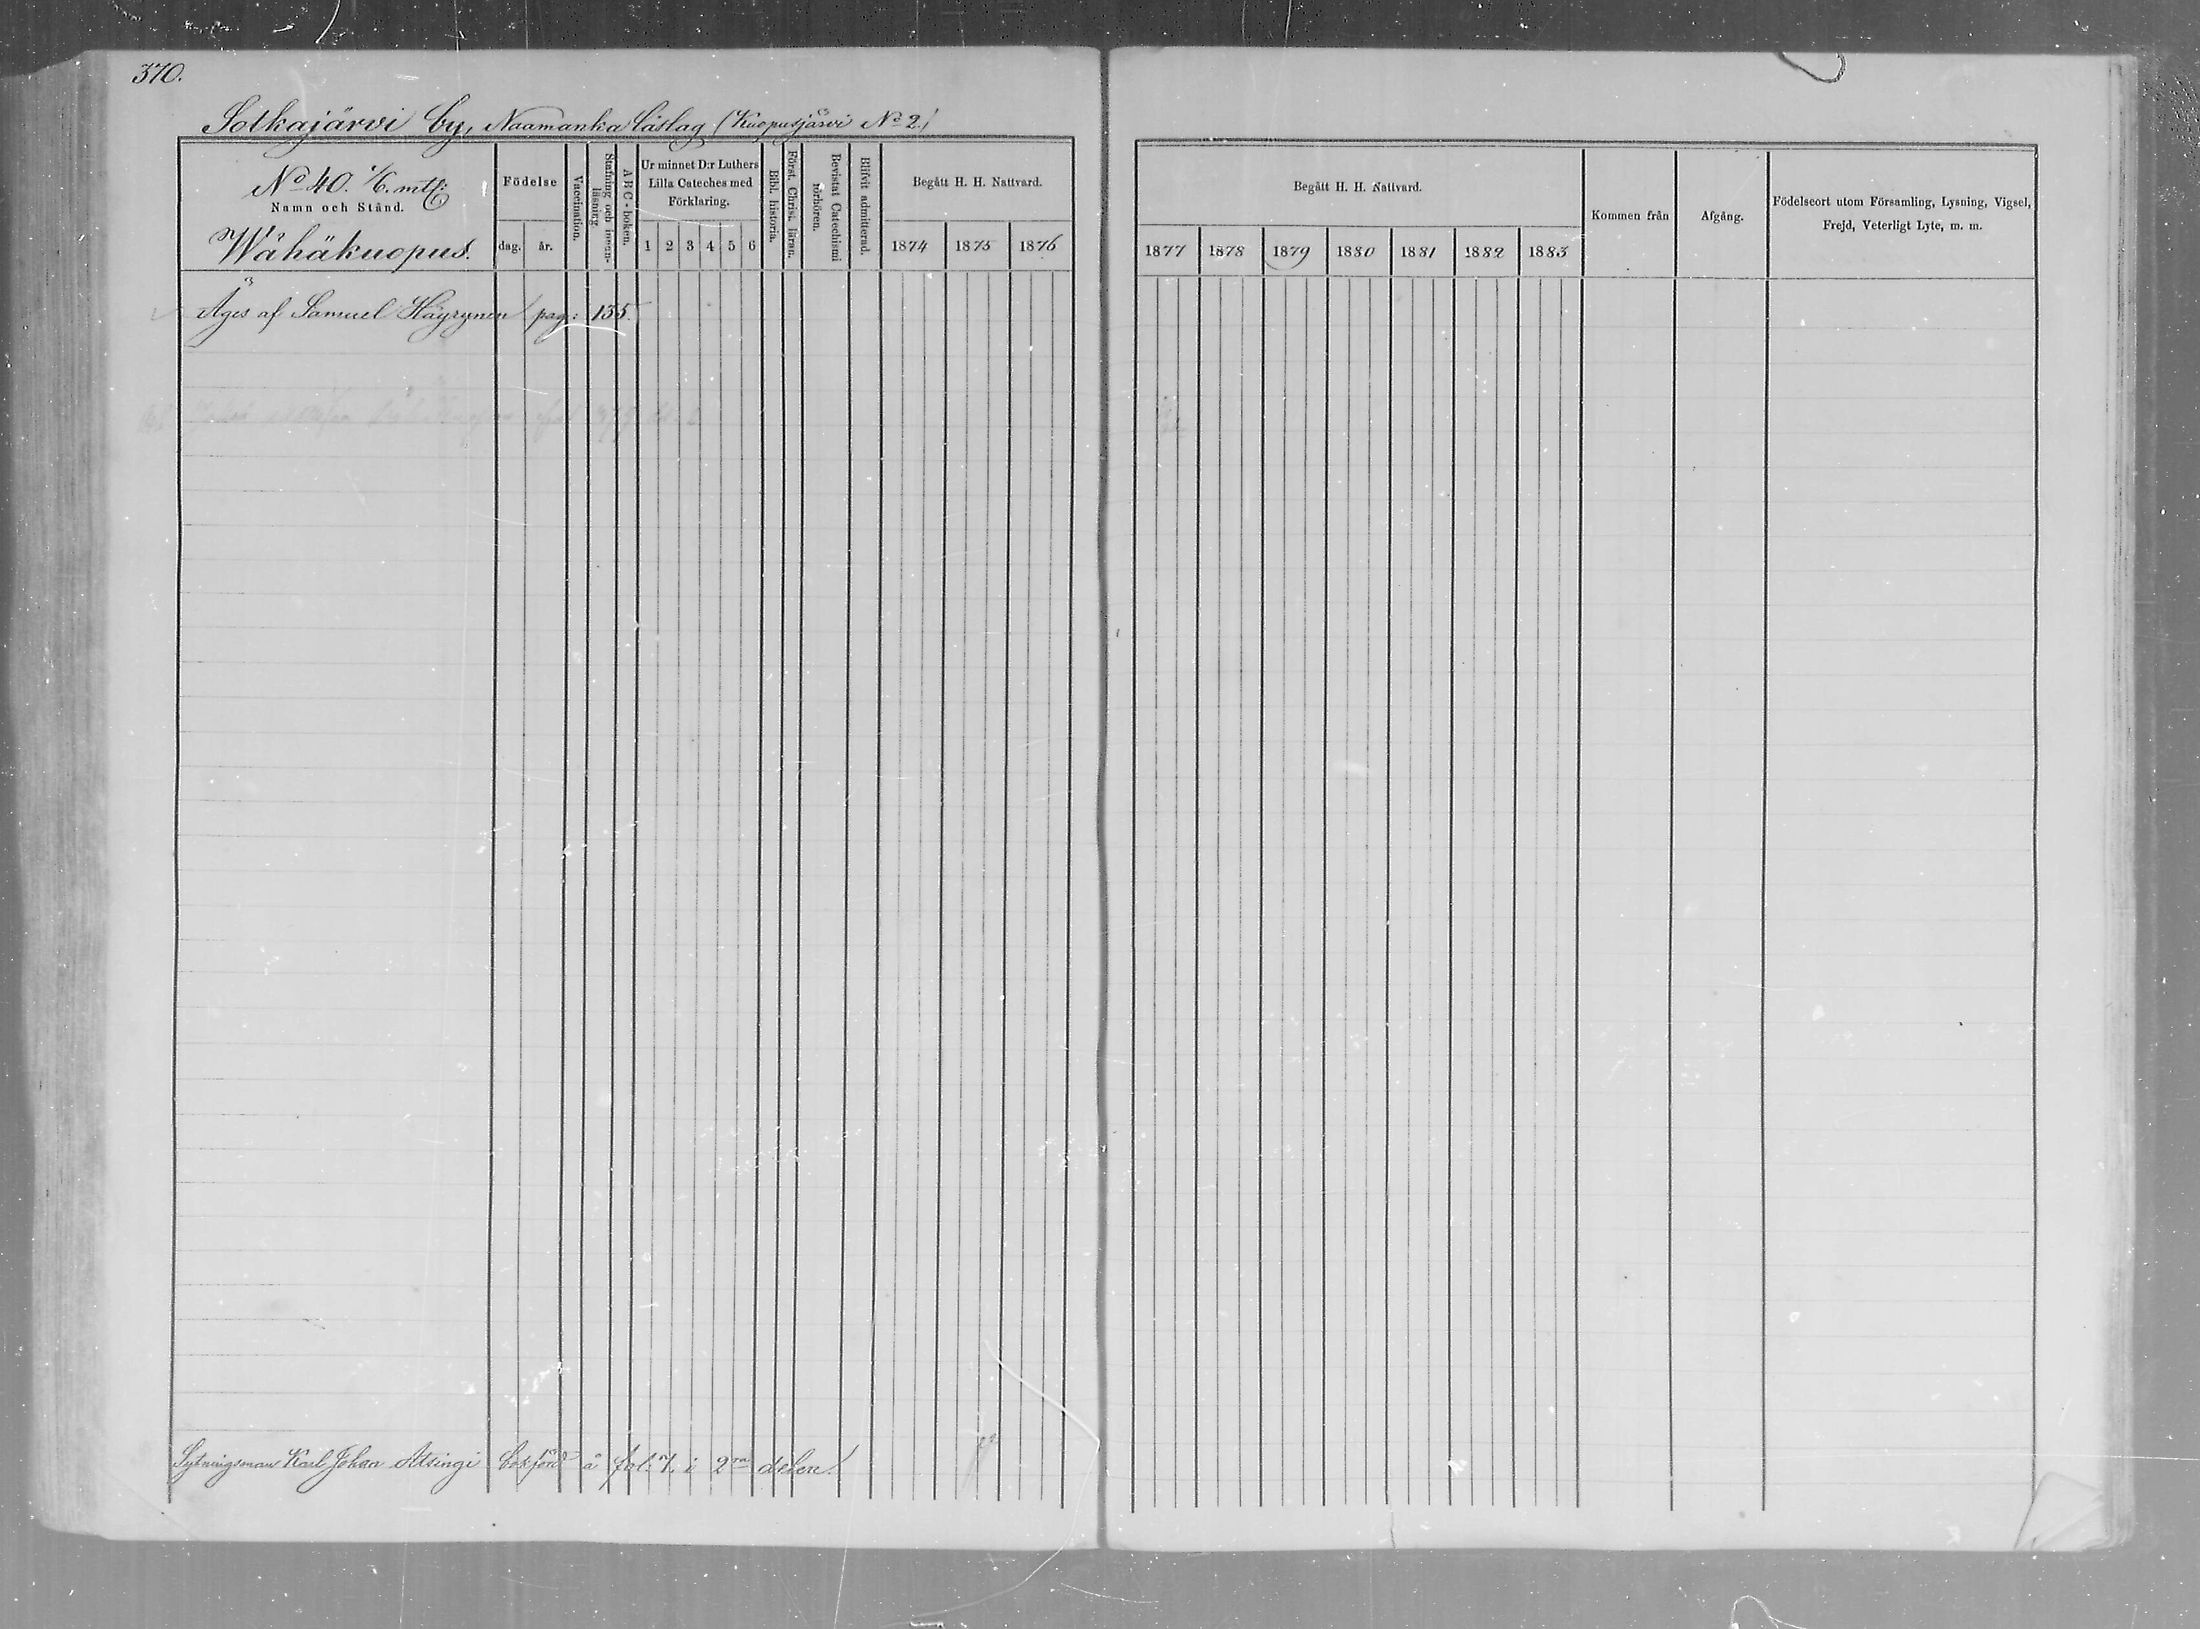 370.
Sotkajärvi by, Naamanka läslag (Kuopusjärvi No 2.)
No 40. 1/6. mtl:
Namn och Stånd.
Wähäkuopus.
Födelse
dag.
år.
Vaccination.
Stafning och innen-
läsning
ABC-boken.
Ur minnet D:r Luthers
Lilla Cateches med
Förklaring.
1 2 3 4 5 6
Bibl. historia.
Först. Christ. läran.
Bevistat Catechismi
förhören.
Blifvit admitterad.
Begått H. H. Nattvard.
1874 1875 1876
Begått H. H. Nattvard.
1877 1878 1879 1880 1881 1882 1883
Kommen från
Afgång.
Födelseort utom Församling, Lysning, Vigsel,
Frejd, Veterligt Lyte, m. m.
Äges af Samuel Häyrynen pag: 135.
Sytningsman Karl Johan Atsingi bokförd å fol: 7. i 2ra delen!